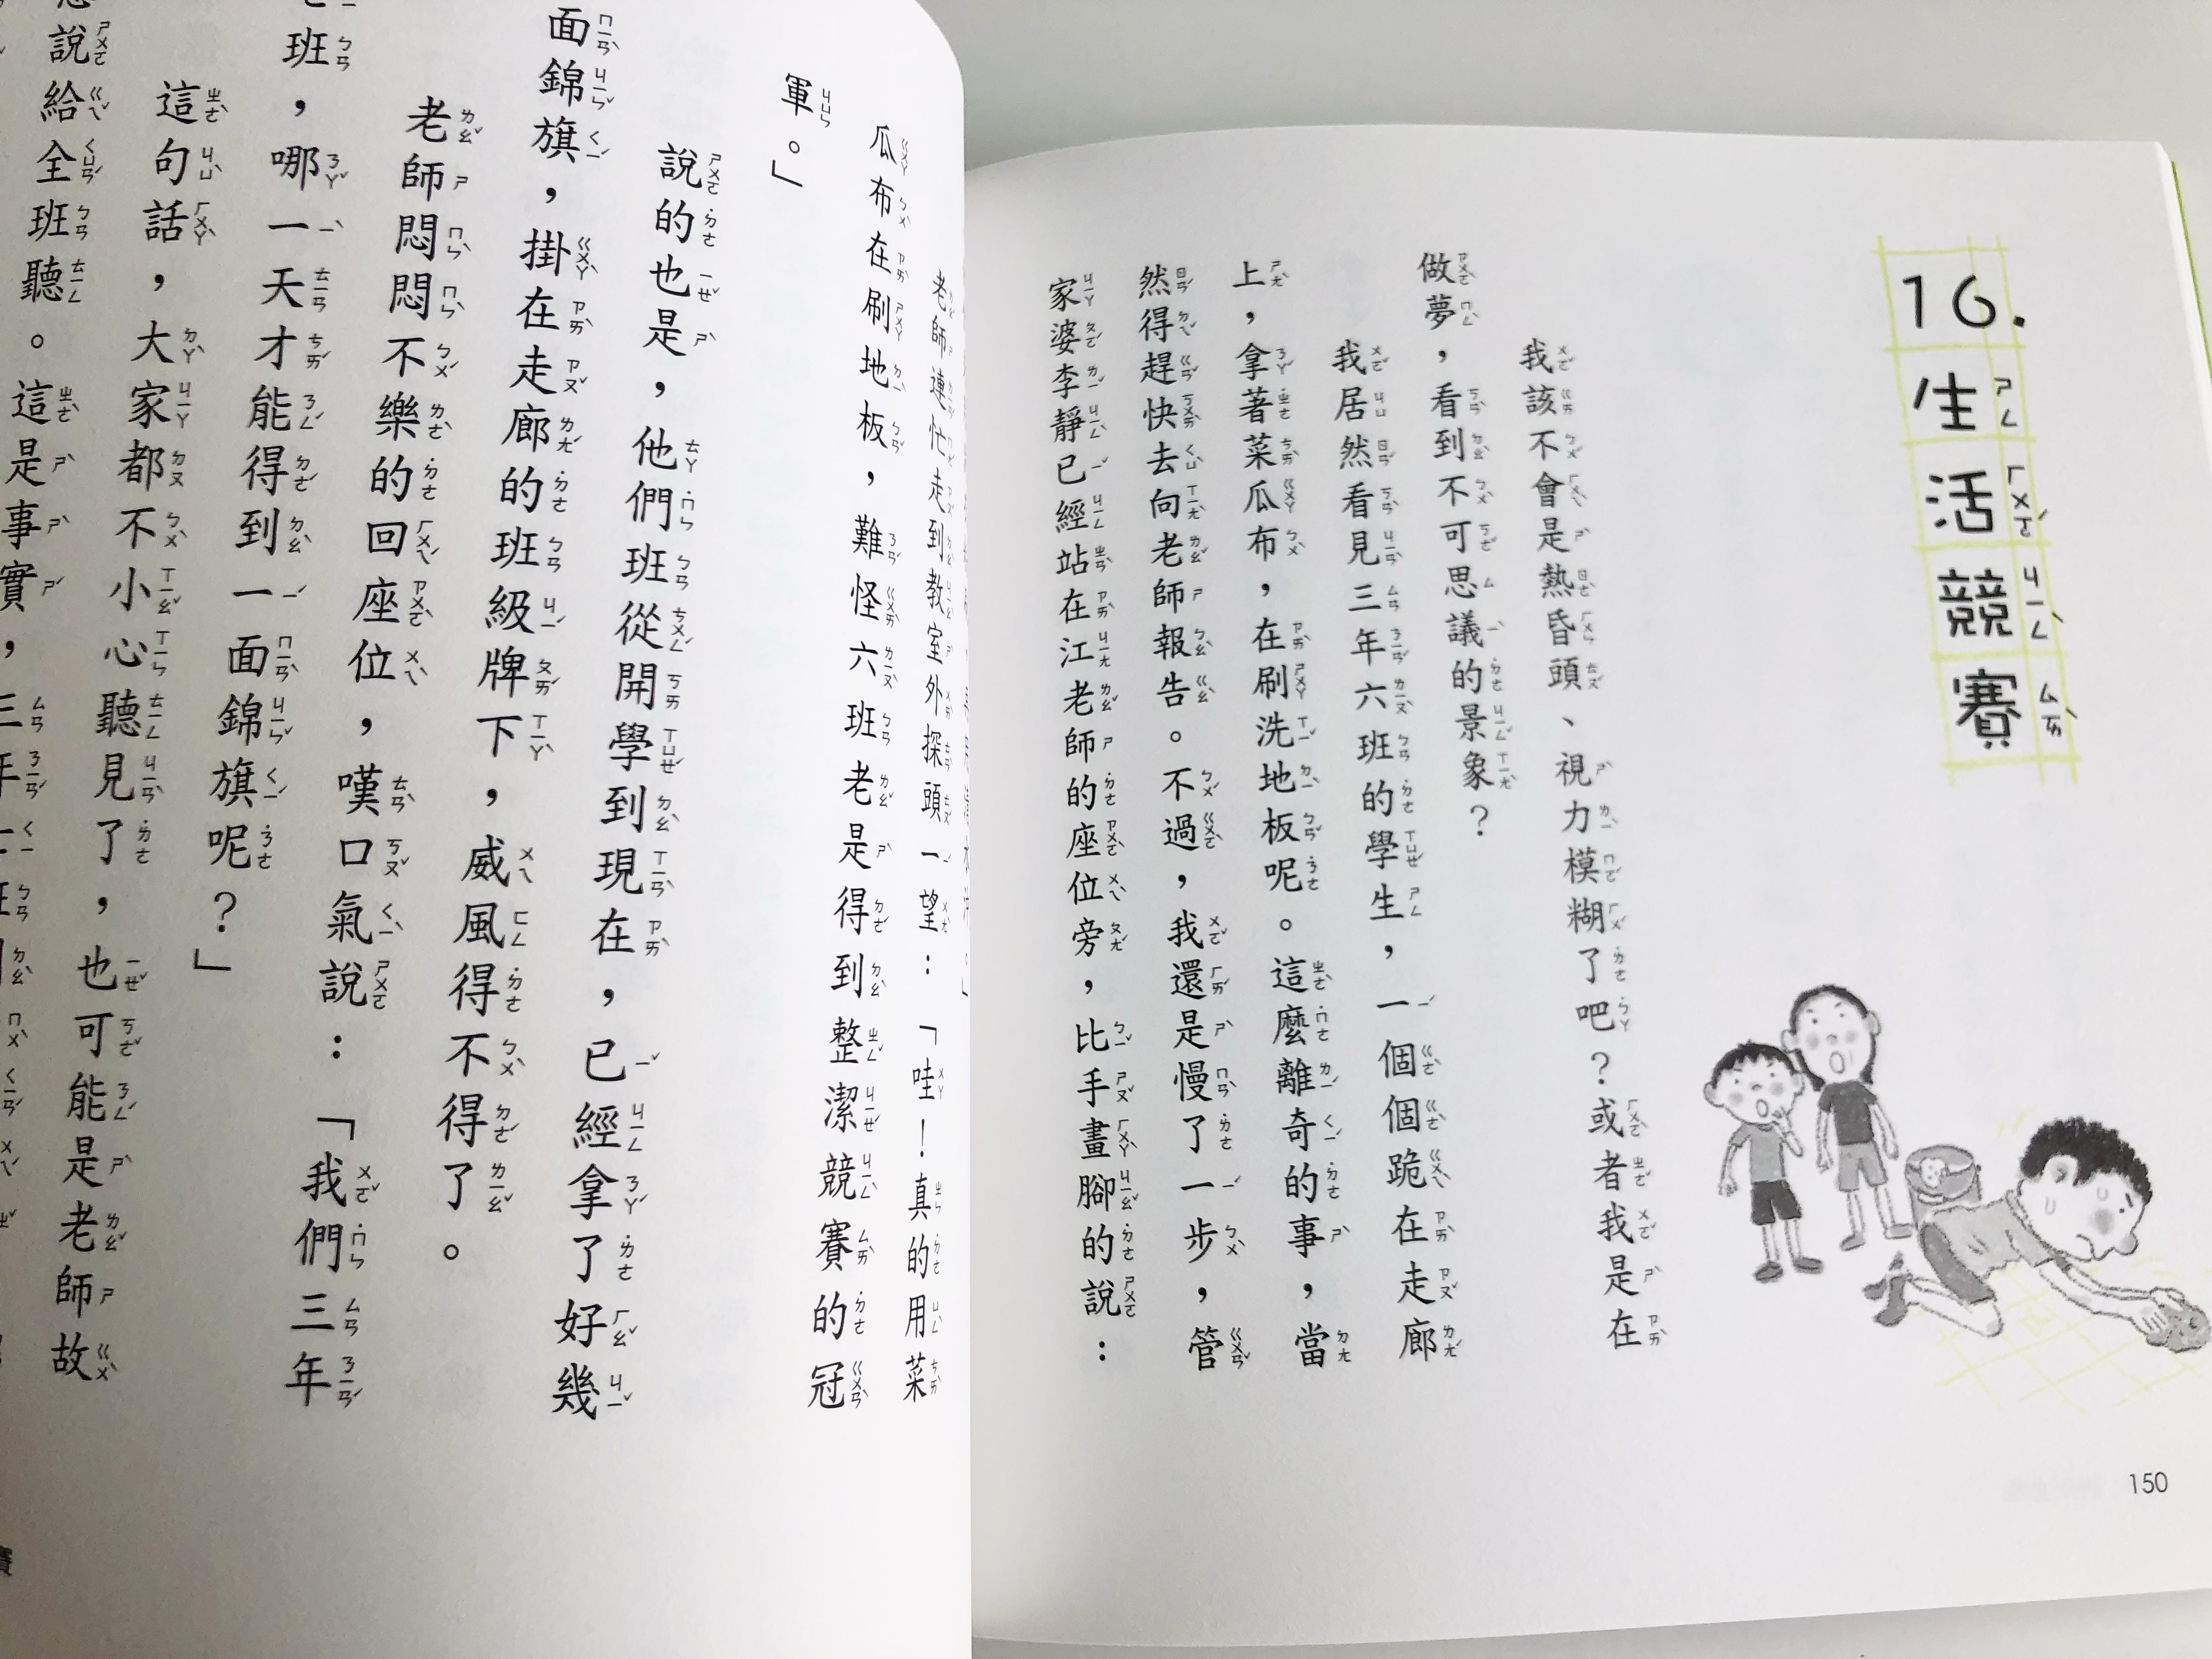 16.生活競賽
我該不會是熱昏頭、視力模糊了吧？或者我是在
做夢，看到不可思議的景象？
我居然看見三年六班的學生，一個個跪在走廊
上，拿著菜瓜布，在刷洗地板呢。這麼離奇的事，當
然得趕快去向老師報告。不過，我還是慢了一步，管
家婆李靜已經站在江老師的座位旁，比手畫腳的說：
150
老師連忙走到教室外探頭一望：「哇！真的用菜
瓜布在刷地板，難怪六班老是得到整潔競賽的冠
軍。」
說的也是，他們班從開學到現在，已經拿了好幾
面錦旗，掛在走廊的班級牌下，威風得不得了。
老師悶悶不樂的回座位，嘆口氣說：「我們三年
班，哪一天才能得到一面錦旗呢？」
這句話，大家都不小心聽見了，也可能是老師故
說給全班聽。這是事實，三